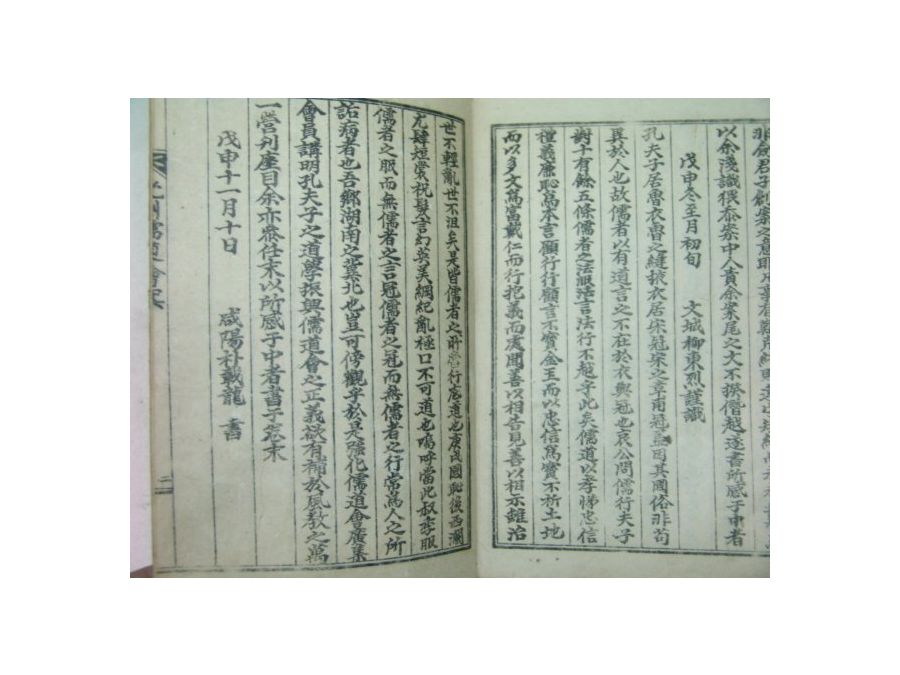 以余淺識猥忝案中人責余案尾之文不揆僭越遂書所感于中者
戊申冬至月初旬 文城柳東烈謹識
孔夫子居魯衣魯之縫掖衣居宋冠宋之章甫冠盖因其國俗非苟
異於人也故儒者以有道言之不在於衣與冠也哀公問儒行夫子
對十有餘五條儒者之法服法言法行不越乎此矣儒道以孝悌忠信
禮義廉恥爲本言顧行行顧言不寶金玉而以忠信爲寶不祈土地
而以多文爲富戴仁而行抱義而處聞善以相告見善以相示雖治
世不輕亂世不沮矣是皆儒者之所當行底道也庚戌國恥後西瀾
尤肆短裳祝髮言幻英美綱紀亂極口不可道也嗚呼當此叔季服
儒者之服而無儒者之言冠儒者之冠而無儒者之行常爲人之所
詬病者也吾鄕湖南之冀北也豈可傍觀乎於是强化儒道會廣集
會員講明孔夫子之道學振興儒道會之正義欲有補於風敎之萬
一營刊座目余亦忝任末以所感于中者書于卷末
戊申十一月十日 咸陽朴載龍 書